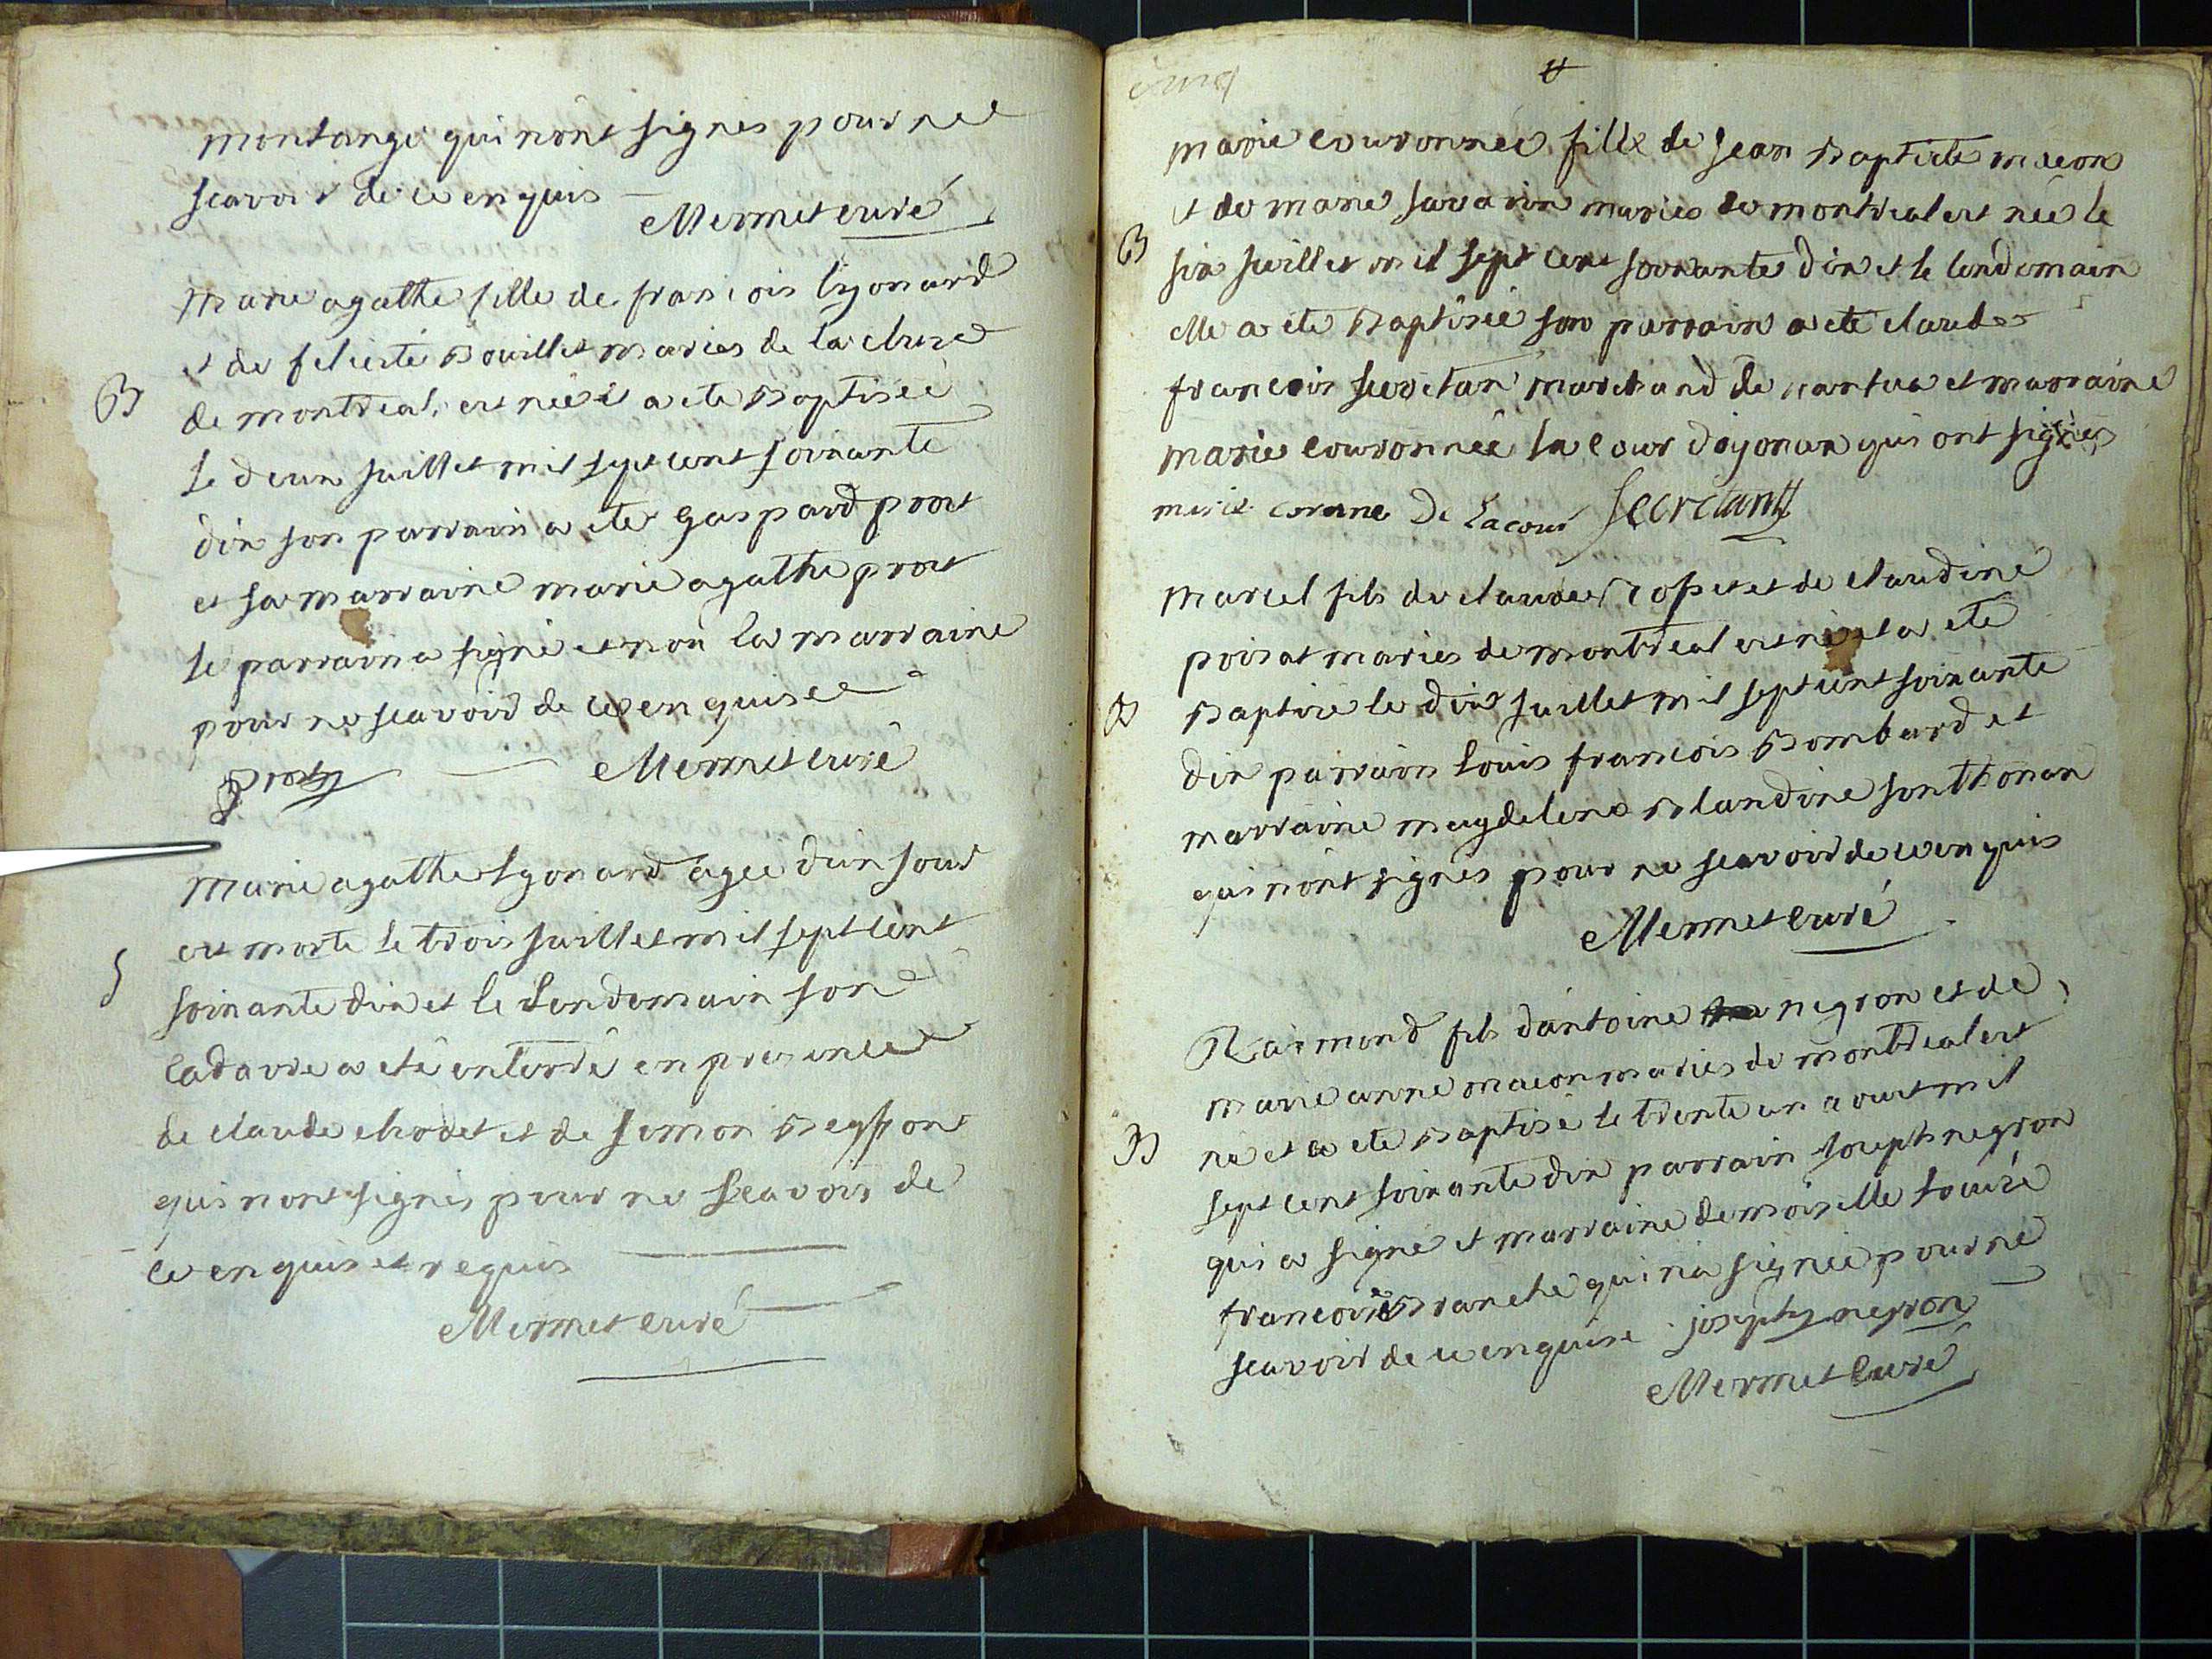 montange qui nont signés pour ne
scavoir de ce enquis
Mermet curé
Marie agathe fille de francois lyonard
et de felicité Bouillet mariés de la cluse
B
de montreal, est neé et a ete Baptiseé
le deux juillet mil sept cent soixante
dix son parrain a ete gaspard prost
et sa marraine marie agathe prost
le parrain a signé et non la marraine
pour ne scavoir de ce enquise
prost
Mermet curé
Marie agathe Lyonard ageé d'un jour
est morte le trois juillet mil sept cent
S
soixante dix et le Lendemain son
cadavre a eté enterré en presence
de claude chodet et de simon
qui nont signés pour ne scavoir de
ce enquis et requis
Mermet curé
cinq
marie couronneé fille de jean Baptiste macon
et de marie savarin mariés de montreal est neé le
B
six juillet mil sept cent soixante dix et le lendemain
elle a ete Baptiseé son parrain a ete claude
francois secretan marchand de nantua et marraine
marie couronneé la cour doyonax qui ont signés
De Lacour Secretant
Marcel fils de claude et de claudine
poisat mariés de montreal est né et a eté
B
Baptisé le dix juillet mil sept cent soixante
dix parrain Louis francois Bombard et
marraine magdelene Blandine sonthonax
qui nont signés pour ne scavoir de ce enquis
Mermet curé
Raimond fils d'antoine negron et de
marie anne macon mariés de montreal est
B
né et a ete Baptisé le trente un aoust mil
sept cent soixante dix parrain joseph negron
qui a signé et marraine demoiselle Louise
francoise Branche qui na signeé pour ne
scavoir de ce enquise joseph negron
Mermet curé